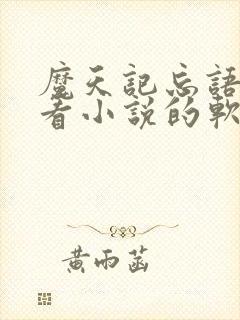 魔天記忘語
看小説的軟
黃雨菡